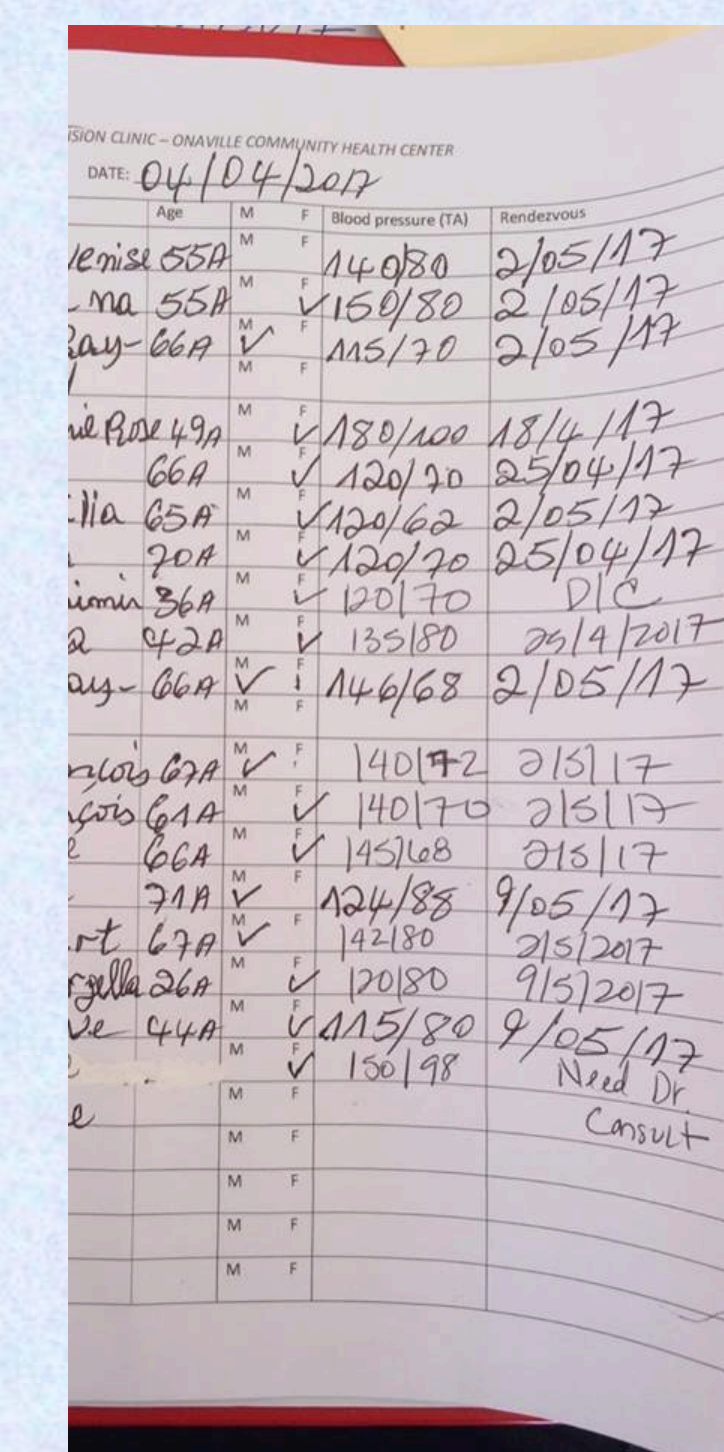 ISION CLINIC – ONAVILLE COMMUNITY HEALTH CENTER
DATE: 04/04/2017
Age M F Blood pressure (TA) Rendezvous
enise 55A M F 140/80 2/05/17
na 55A M F ✓ 150/80 2/05/17
Ray- 66A M ✓ F 115/70 2/05/17
M F
ie Rose 49A M F ✓ 180/100 18/4/17
66A M F ✓ 120/70 25/04/17
ilia 65A M F ✓ 120/62 2/05/17
70A M F ✓ 120/70 25/04/17
imir 36A M F ✓ 120/70 D/C
a 42A M F ✓ 135/80 25/4/2017
ay- 66A M ✓ F 146/68 2/05/17
M F
nçois 67A M ✓ F 140/72 2/5/17
çois 61A M F ✓ 140/70 2/5/17
e 66A M F ✓ 145/68 2/5/17
71A M ✓ F 124/88 9/05/17
rt 67A M ✓ F 142/80 2/5/2017
rgella 26A M F ✓ 120/80 9/5/2017
ve 44A M F ✓ 115/80 9/05/17
M F ✓ 150/98 Need Dr.
e M F Consult
M F
M F
M F
M F